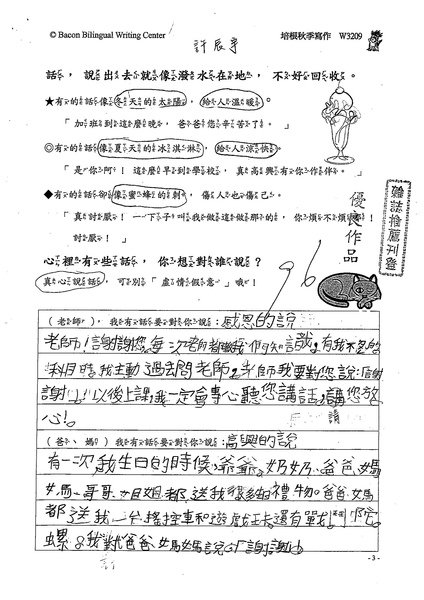 © Bacon Bilingual Writing Center
許辰宇
培根秋季寫作 W3209
話，說出去就像潑水在地，不好回收。
★有的話像冬天的太陽，給人溫暖。
「加班到這麼晚，爸爸您辛苦了。」
◎有的話像夏天的冰淇淋，給人涼快。
「是你阿！這麼早到學校，真高興有你作伴。」
◆有的話卻像蜜蜂的刺，傷人也傷己。
「真討厭！一下子叫我做這做那的，你煩不煩啊！
討厭！」
優良作品
雜誌推薦刊登
心裡有些話，你想對誰說？
真心說話，可別「虛情假意」哦！
96
（老師），我有話要對你說：感恩的說
老師！謝謝您。每次老師都教我們知識。有我不會的
科目時，我主動過去問老師。老師我要對您說：謝
謝！以後上課，我一定會專心聽您講話，請您放
心！
請
（爸、媽）我有話要對你說：高興的說
有一次我生日的時候，爺爺、奶奶、爸爸、媽
媽、哥哥、姐姐都送我很多的禮物。爸爸、媽媽
都送我一台搖控車和遊戲王、還有戰鬥陀
螺。我對爸爸、媽媽說：「謝謝」
- 3 -